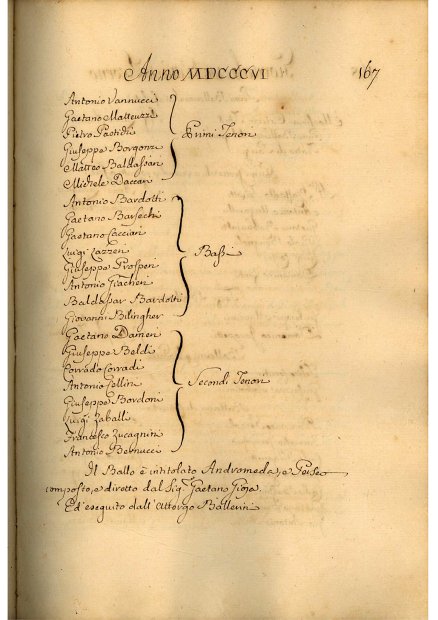 Anno MDCCCVI 167
Antonio Vannucci
Gaetano Matteuzzi
Pietro Paotidhi
Primi Tenori
Giuseppe Borgonzi
Matteo Baldassari
Michele Daccari
Antonio Bardotti
Gaetano Barsechi
Gaetano Cacciari
Luigi Lazzeri
Bassi
Giuseppe Prosperi
Antonio Giacheri
Baldassar Bardotti
Giovanni Bilingher
Gaetano Dameri
Giuseppe Beldi
Corrado Corradi
Antonio Cellini
Secondi Tenori
Giuseppe Bordoni
Luigi Zaballi
Francesco Zucagnini
Antonio Bernucci
Il Ballo è intitolato Andromeda, e Perseo
composto, e diretto dal Sig. Gaetan Gioja.
Ed' eseguito dall' Ballerini